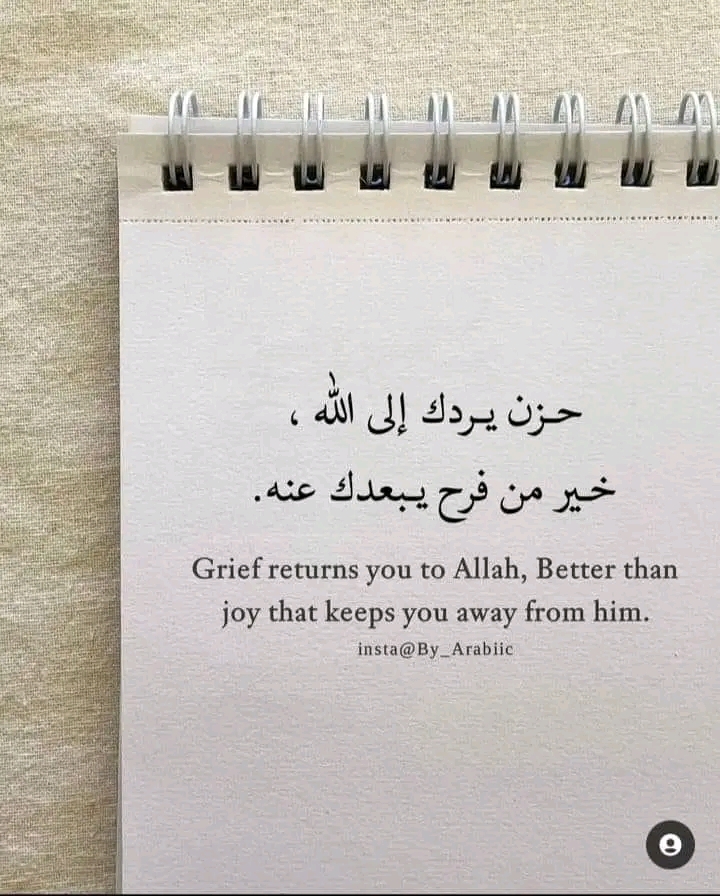 حزن يردك إلى الله ،
خير من فرح يبعدك عنه.
Grief returns you to Allah, Better than
joy that keeps you away from him.
insta@By_Arabiic